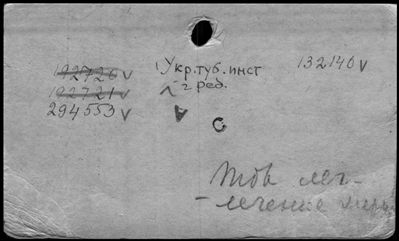 192726 v
192721 v
294553 v
Укр.туб.инст
г ред.
132140 v
А
С
Тов лег-
-лечение